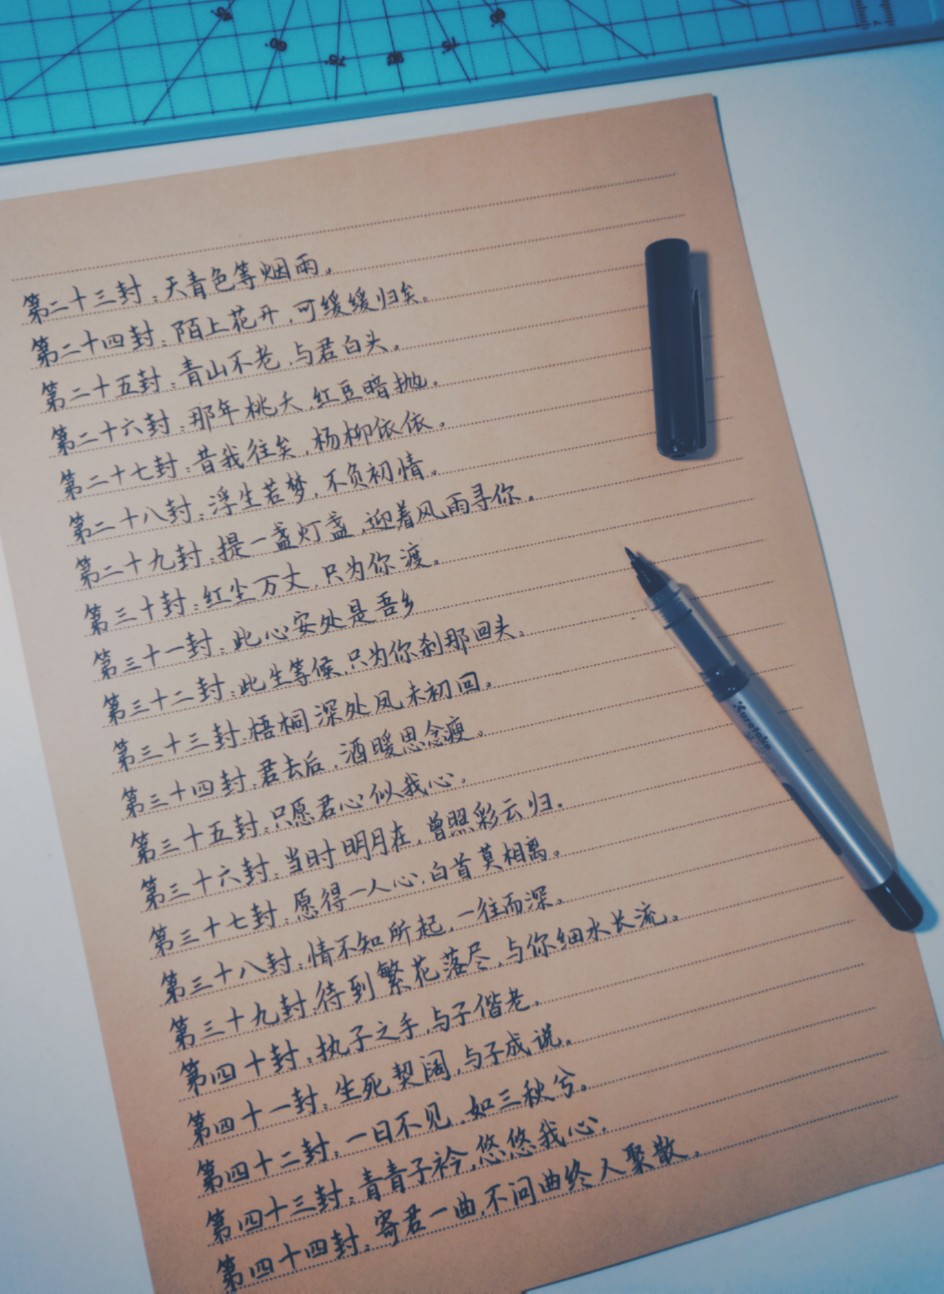 第二十三封：天青色等烟雨。
第二十四封：陌上花开，可缓缓归矣。
第二十五封：青山不老，与君白头。
第二十六封：那年桃夭，红豆暗抛。
第二十七封：昔我往矣，杨柳依依。
第二十八封：浮生若梦，不负初情。
第二十九封：提一盏灯盏，迎着风雨寻你。
第三十封：红尘万丈，只为你渡。
第三十一封：此心安处是吾乡
第三十二封：此生等候，只为你刹那回头。
第三十三封：梧桐深处风未初回。
第三十四封：君去后，酒暖思念瘦。
第三十五封：只愿君心似我心。
第三十六封：当时明月在，曾照彩云归。
第三十七封：愿得一人心，白首莫相离。
第三十八封：情不知所起，一往而深。
第三十九封：待到繁花落尽，与你细水长流。
第四十封：执子之手，与子偕老。
第四十一封：生死契阔，与子成说。
第四十二封：一日不见，如三秋兮。
第四十三封：青青子衿，悠悠我心。
第四十四封：寄君一曲，不问曲终人聚散。